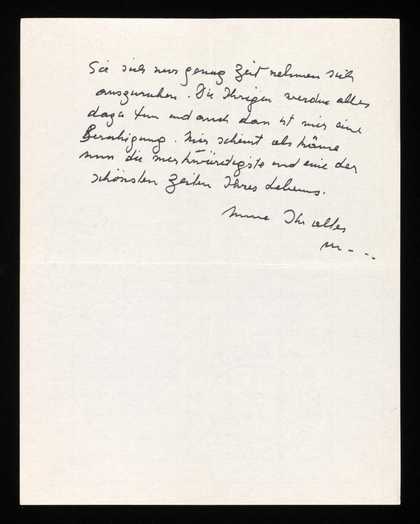 Sie sich nur genug Zeit nehmen sich
auszuruhen. Die Ihrigen werden alles
dazu tun und auch das ist mir eine
Beruhigung. Mir scheint als käme
nun die merkwürdigste und eine der
schönsten Zeiten Ihres Lebens.
Immer Ihr altes
M- . .